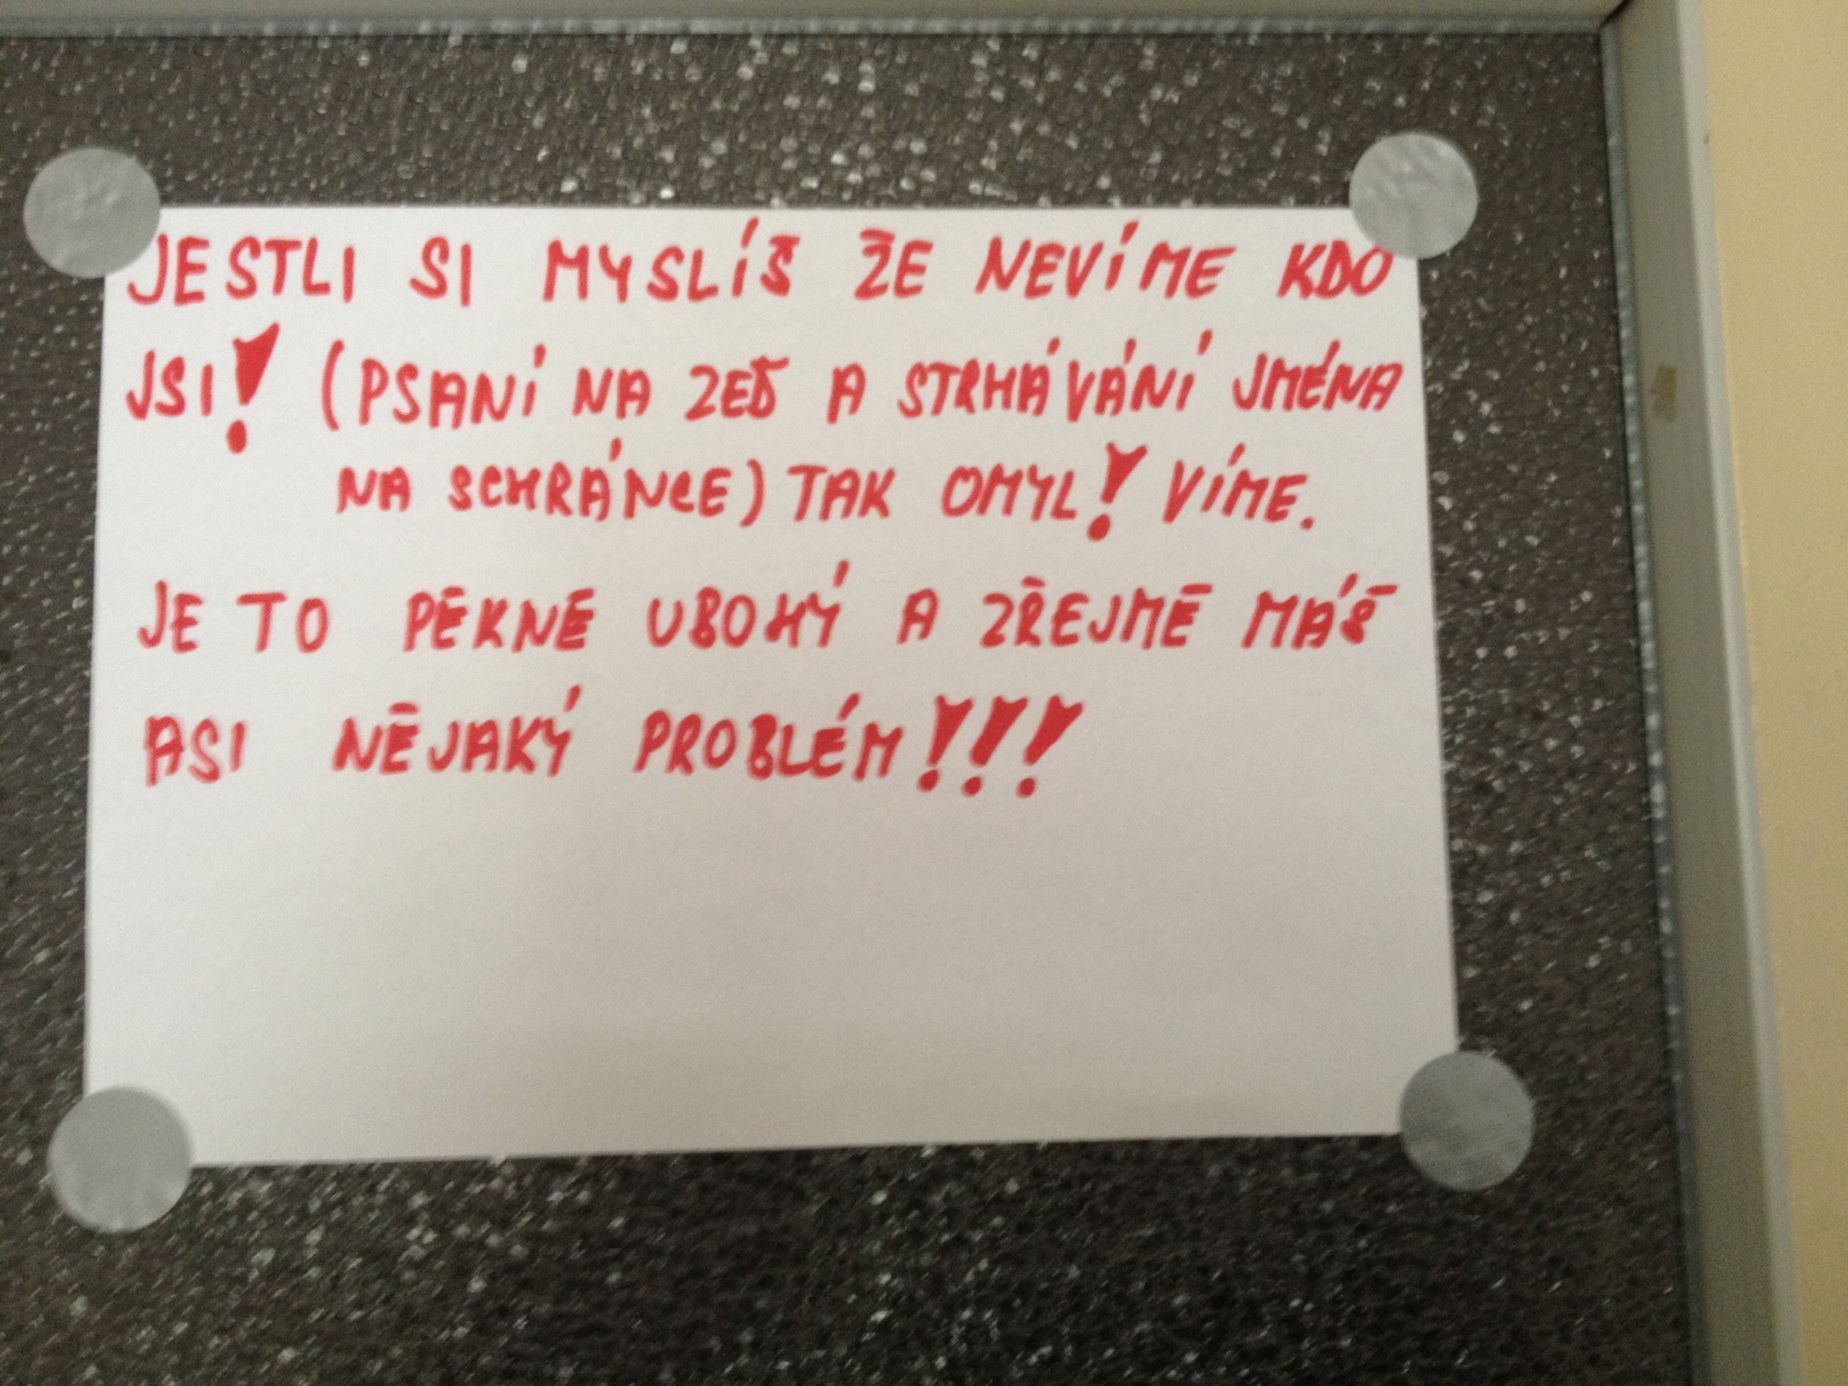 JESTLI SI MYSLÍŠ ŽE NEVÍME KDO
JSI! (PSANÍ NA ZEĎ A STRHÁVÁNÍ JMÉNA
NA SCHRÁNCE) TAK OMYL! VÍME.
JE TO PĚKNĚ UBOHÝ A ZŘEJMĚ MÁŠ
ASI NĚJAKÝ PROBLÉM!!!